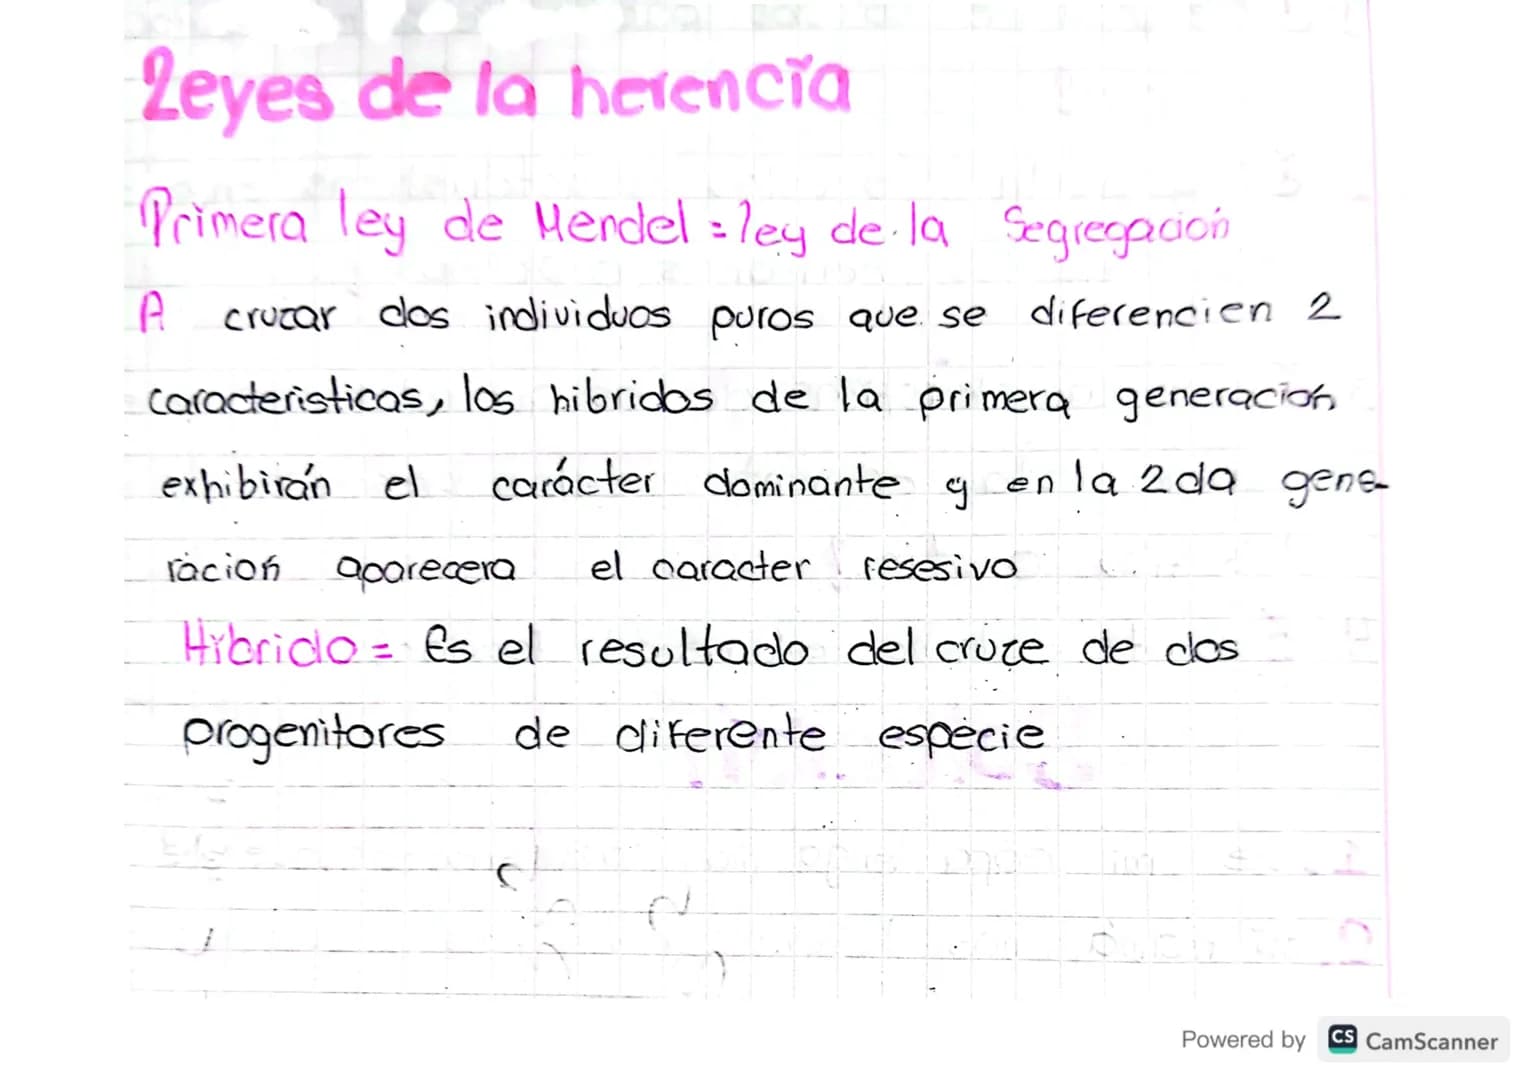 Leyes de la herencia
Primera ley de Mendel = ley de la Segregación
A cruzar dos individuos puros que se diferencien 2
caracteristicas, los hibridos de la primera generación
exhibirán el carácter dominante y en la 2da gene-
ración aparecera el caracter resesivo
Hibrido = Es el resultado del cruze de dos
progenitores de diferente especie
Powered by CS CamScanner